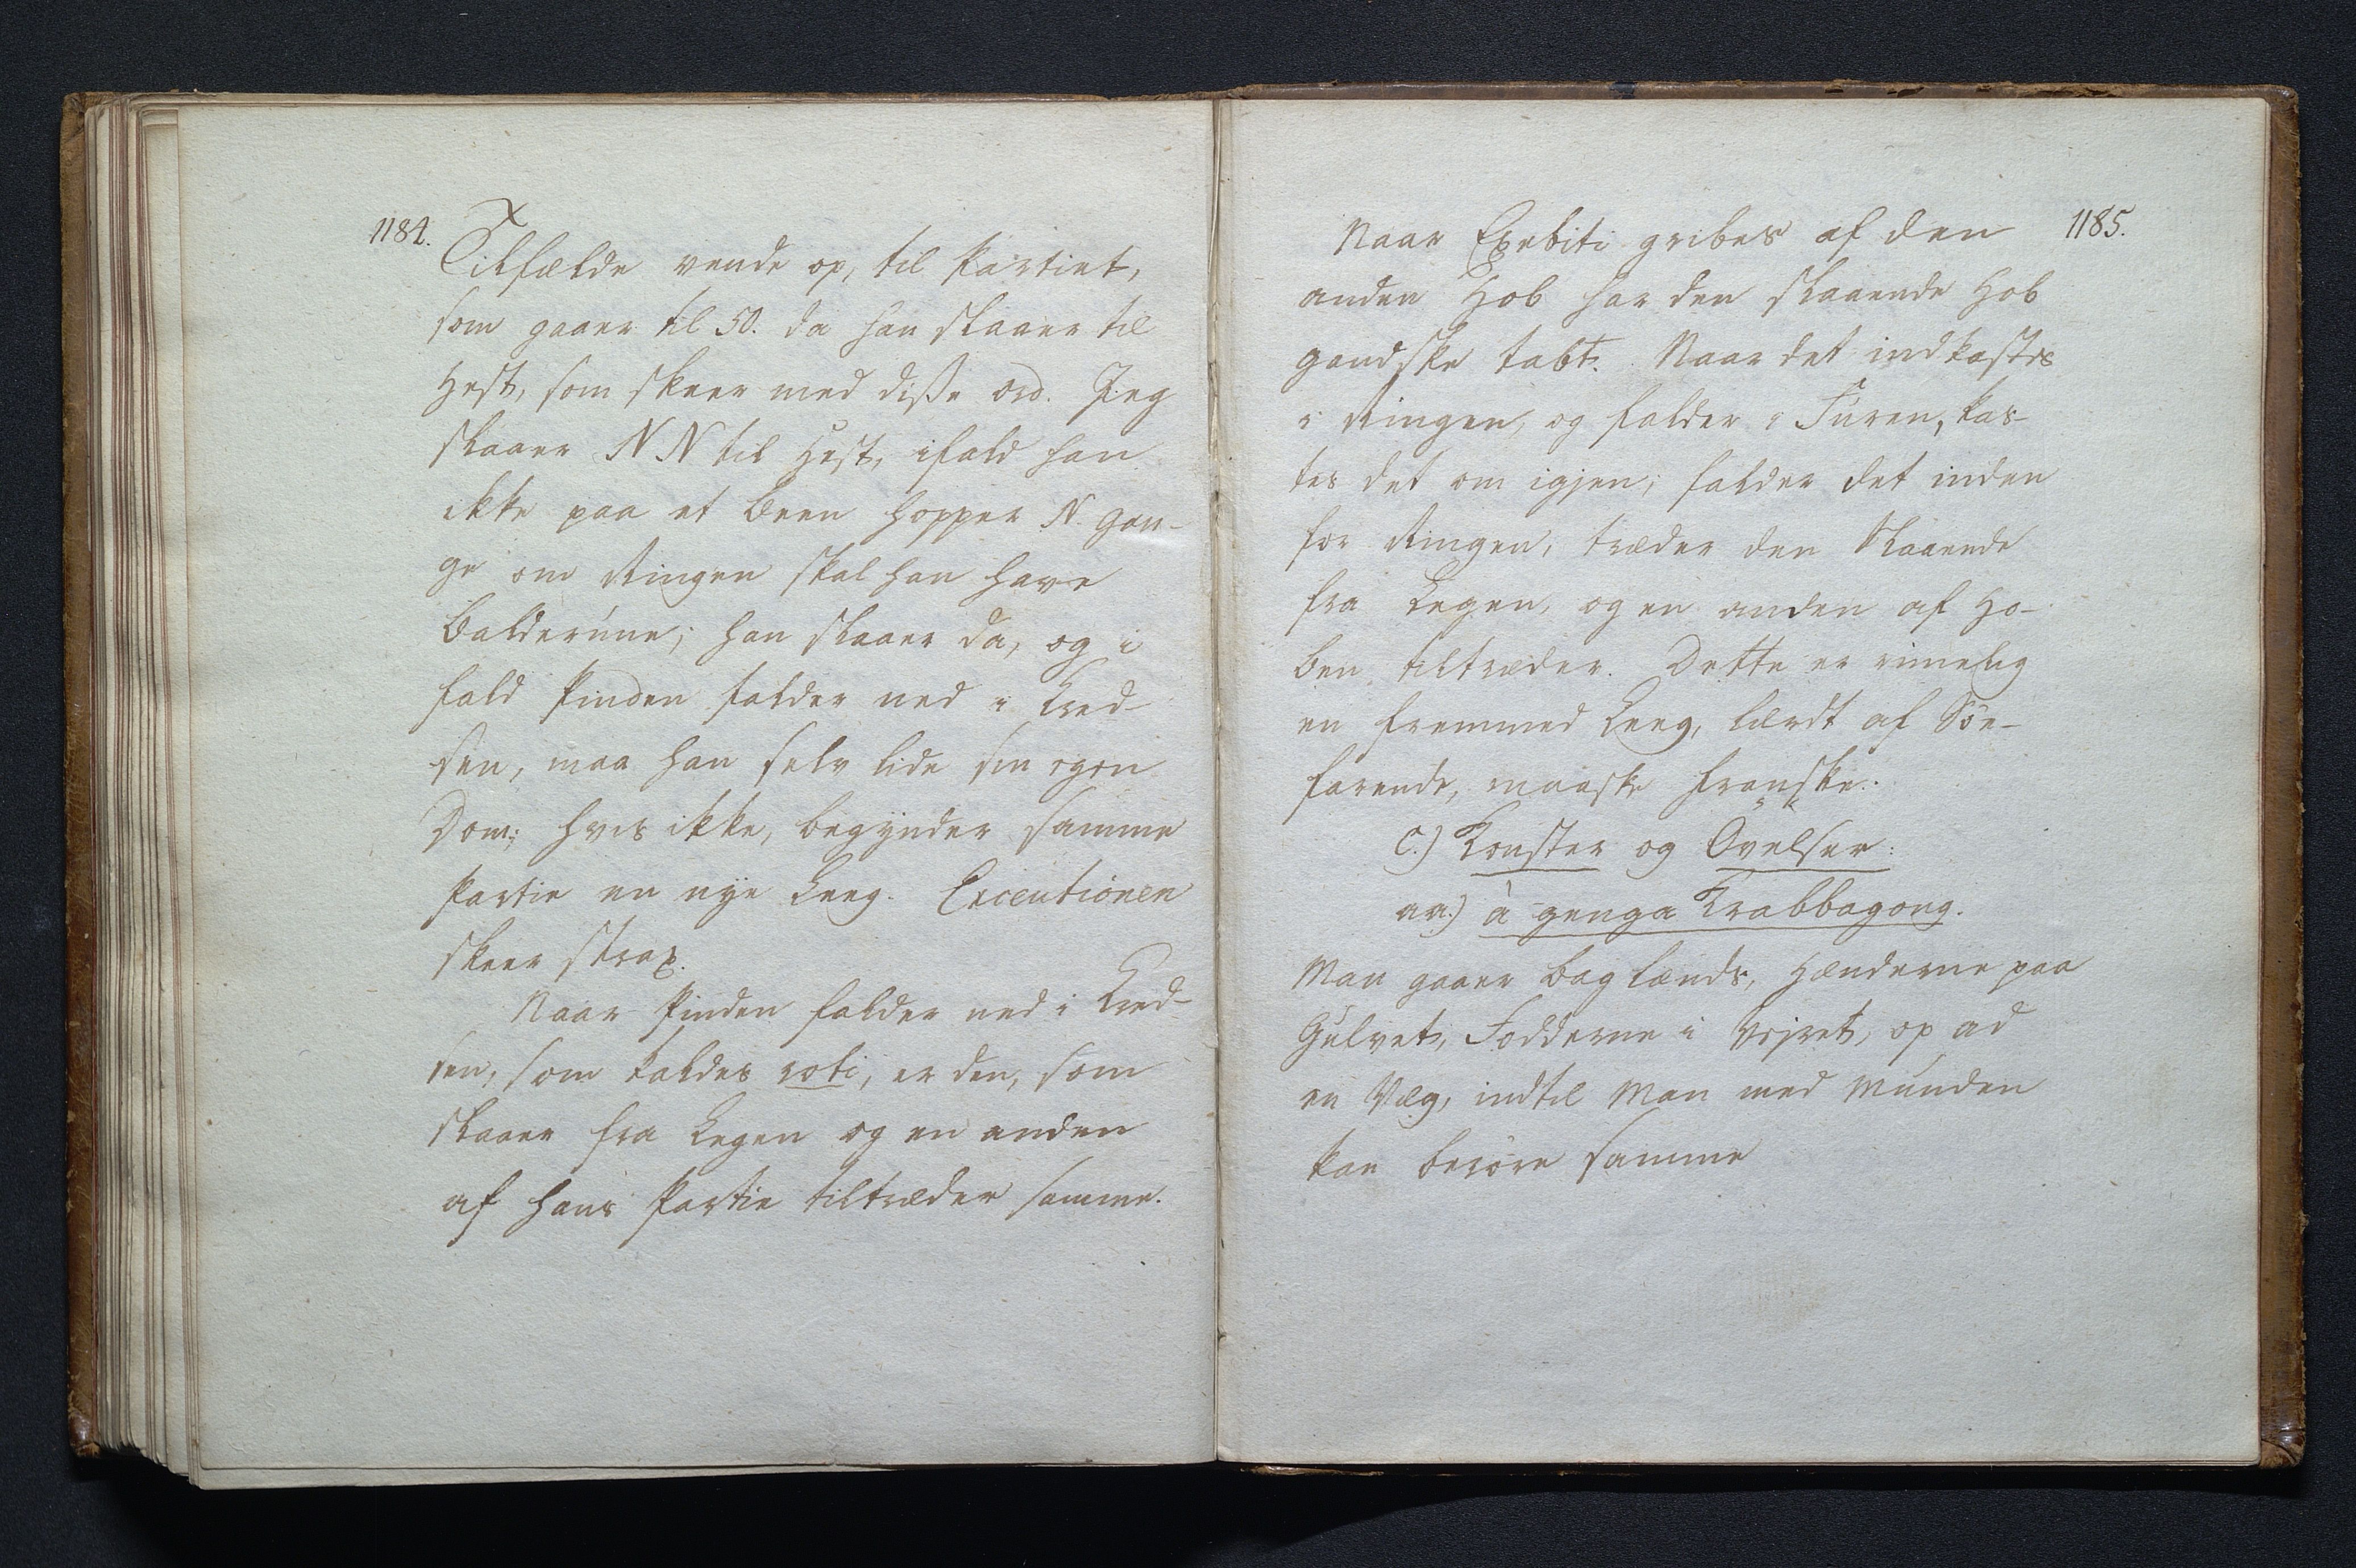 1184.
Tilfælde vende op, til Partiet,
som gaaer til 50. da han slaaer til
Hest, som skeer med disse ord. Jeg
slaaer NN til Hest, ifald han
ikke paa et Been hopper N. gan-
ge om Ringen skal han have
Balderune; han slaaer da, og i
fald Pinden falder ned i Kred-
sen, maa han selv lide sin egen
Dom; hvis ikke, begynder samme
Partie en nye Leeg. Executionen
skeer strax.
Naar Pinden falder ned i Kred-
sen, som kaldes roti, er den, som
slaaer fra Legen og en anden
af hans Partie tiltræder samme.
1185.
Naar Exebiti gribes af den
anden Hob har den slaaende Hob
gandske tabt. Naar det indkastes
i Ringen, og falder i Furen, kas-
tes det om igjen; falder det inden
for Ringen, træder den Slaaende
fra Legen, og en anden af Ho-
ben tiltræder. Dette er rimelig
en fremmed Leeg, lærdt af Söe-
farende, maaske franske.
C.) Konster og Övelser:
aa.) à genga Krabbagong.
Man gaaer baglænds, Hænderne paa
Gulvet, Födderne i Vejret, op ad
en Væg, indtil Man med Munden
kan beröre samme